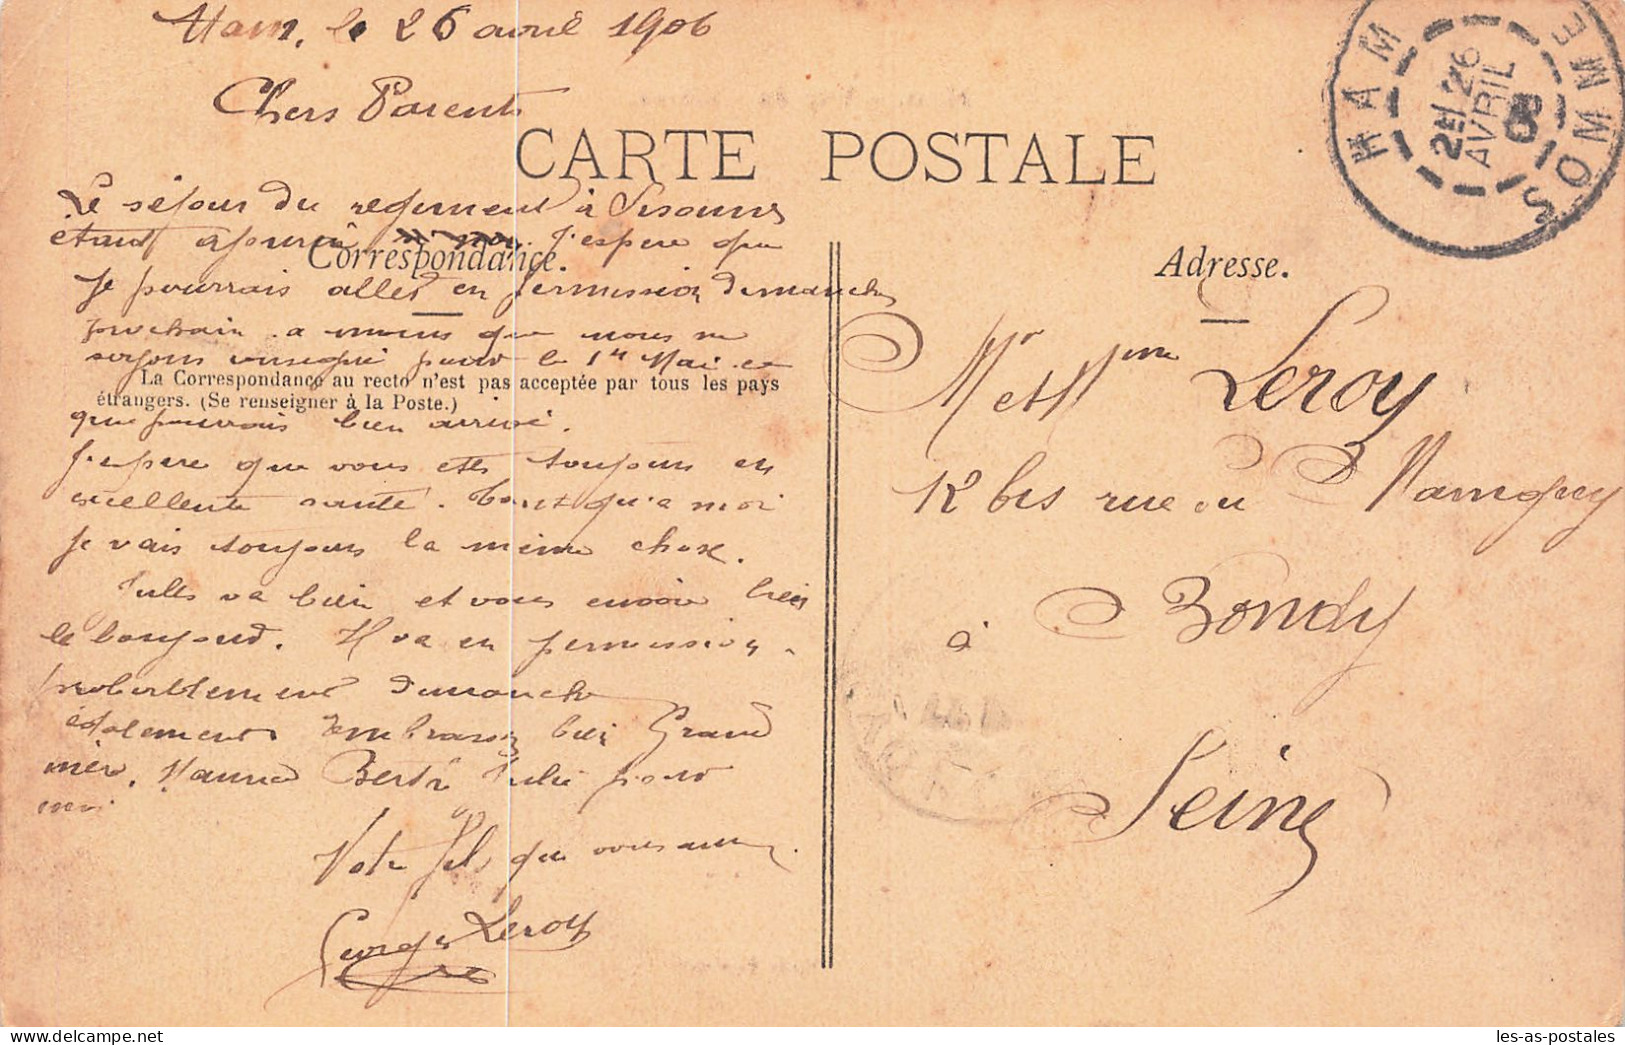 Ham, le 26 avril 1906
Chers Parents
CARTE POSTALE
HAM SOMME
2E 26
AVRIL
Le séjour du regiment à Sisonne
étant ajourné J'espere que
Correspondance.
je pourrais aller en permission dimanche
prochain a moins que nous ne
soyons pour le 1er Mai ce
La Correspondance au recto n'est pas acceptée par tous les pays
étrangers. (Se renseigner à la Poste.)
que pourrais bien arrivé.
J'espere que vous etes toujours en
excellente santé. Tant qu'a moi
je vais toujours la même chose.
Jules va bien et vous envoie bien
le bonjour. Il va en permission
probablement dimanche
également J'embrasse bien Grand
mère, Berthe Julie pour
moi
Votre fils qui vous aime
Georges Leroy
Adresse.
Mr et Mme Leroy
12 bis rue du
à Bondy
Seine
les-as-postales